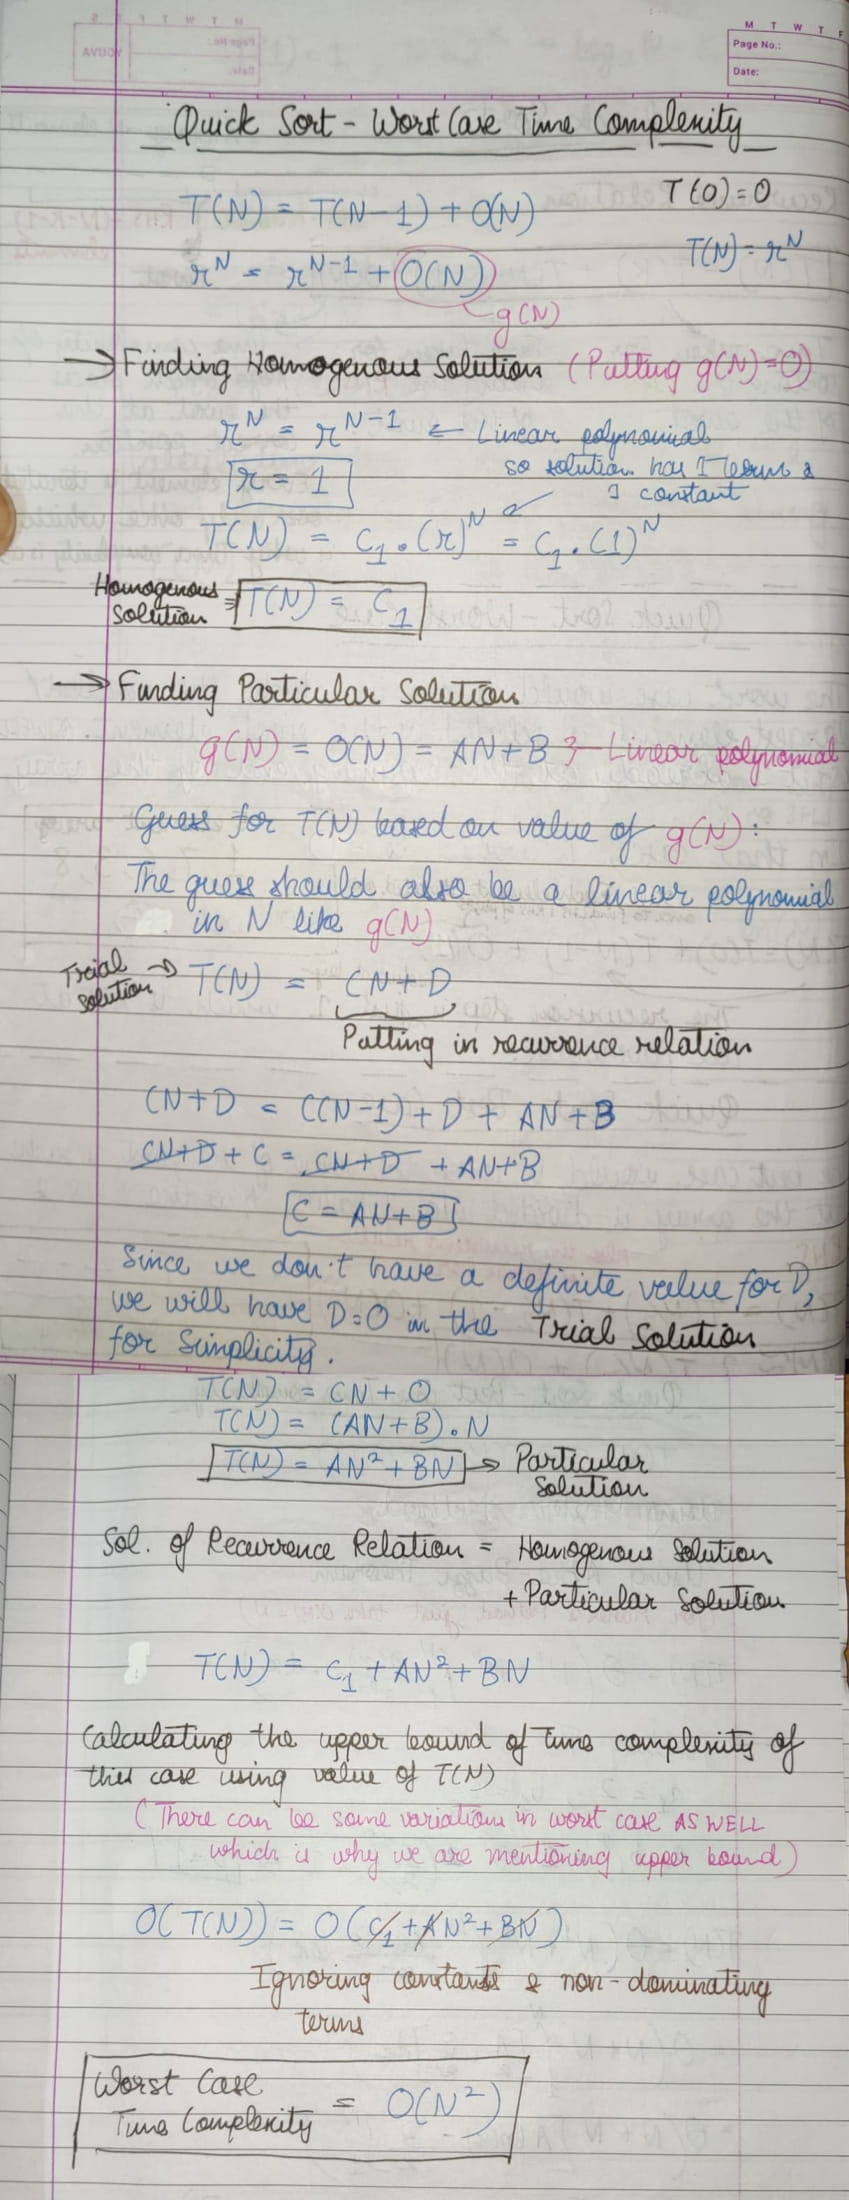 M T W T F
Page No.:
Date:
YOUVA
Quick Sort - Worst Case Time Complexity
T(N) = T(N-1) + O(N)
T(0) = 0
r^N = r^N-1 + O(N)
T(N) = r^N
g(N)
→ Finding Homogenous Solution (Putting g(N)=0)
r^N = r^N-1 ← Linear polynomial
so solution has 1 term &
1 constant
r = 1
T(N) = C₁.(r)^N = C₁.(1)^N
Homogenous
Solution = T(N) = C₁
→ Finding Particular Solution
g(N) = O(N) = AN+B } Linear polynomial
Guess for T(N) based on value of g(N):
The guess should also be a linear polynomial
in N like g(N)
Trial
Solution → T(N) = CN+D
Putting in recurrence relation
CN+D = C(N-1)+D + AN+B
CN+D + C = CN+D + AN+B
C = AN+B
Since we don't have a definite value for D,
we will have D=0 in the Trial Solution
for simplicity.
T(N) = CN+0
T(N) = (AN+B).N
T(N) = AN²+BN → Particular
Solution
Sol. of Recurrence Relation = Homogenous Solution
+ Particular Solution
T(N) = C₁ + AN² + BN
Calculating the upper bound of time complexity of
this case using value of T(N)
(There can be some variations in worst case AS WELL
which is why we are mentioning upper bound)
O(T(N)) = O(C₁+AN²+BN)
Ignoring constants & non-dominating
terms
Worst Case
Time Complexity = O(N²)